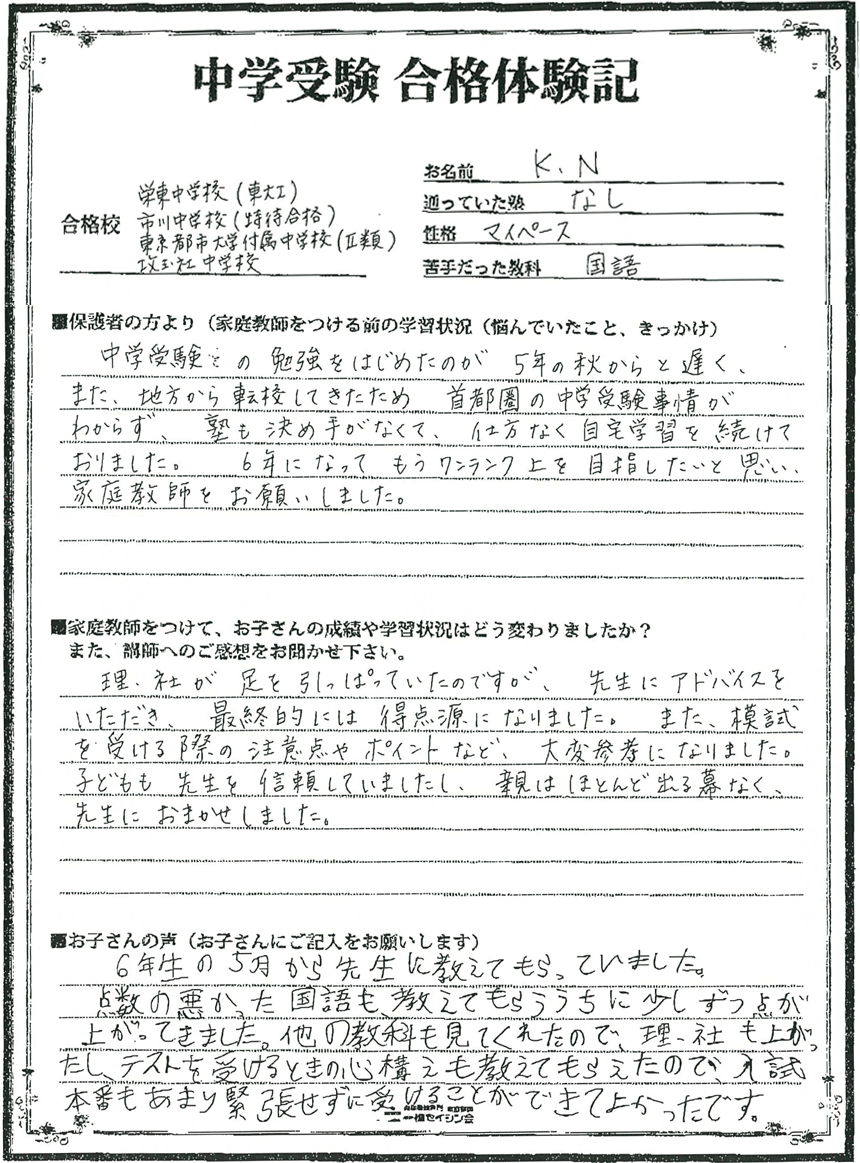 中学受験 合格体験記
合格校
栄東中学校(東大I)
市川中学校(特待合格)
東京都市大学付属中学校(Ⅱ類)
攻玉社中学校
お名前 K.N
通っていた塾 なし
性格 マイペース
苦手だった教科 国語
■保護者の方より(家庭教師をつける前の学習状況(悩んでいたこと、きっかけ)
中学受験の勉強をはじめたのが 5年の秋からと遅く、
また、地方から転校してきたため 首都圏の中学受験事情が
わからず、塾も決め手がなくて、仕方なく自宅学習を続けて
おりました。 6年になって もうワンランク上を目指したいと思い、
家庭教師をお願いしました。
■家庭教師をつけて、お子さんの成績や学習状況はどう変わりましたか?
また、講師へのご感想をお聞かせ下さい。
理・社が 足を引っぱっていたのですが、 先生にアドバイスを
いただき、 最終的には 得点源になりました。 また、模試
を受ける際の注意点やポイントなど、大変参考になりました。
子どもも先生を信頼していましたし、 親はほとんど出る幕なく、
先生におまかせしました。
■お子さんの声(お子さんにご記入をお願いします)
6年生の5月から先生に教えてもらっていました。
点数の悪かった国語も、教えてもらううちに少しずつ点が
上がってきました。他の教科も見てくれたので、理・社も上がっ
たし、テストを受けるときの心構えも教えてもらえたので、入試
本番もあまり緊張せずに受けることができてよかったです。
一橋セイシン会